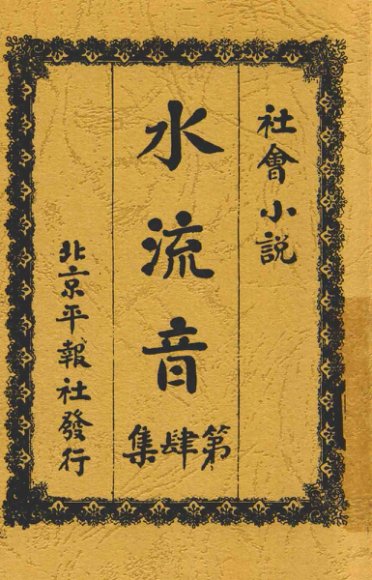 社會小説
水流音
第肆集
北京平報社發行